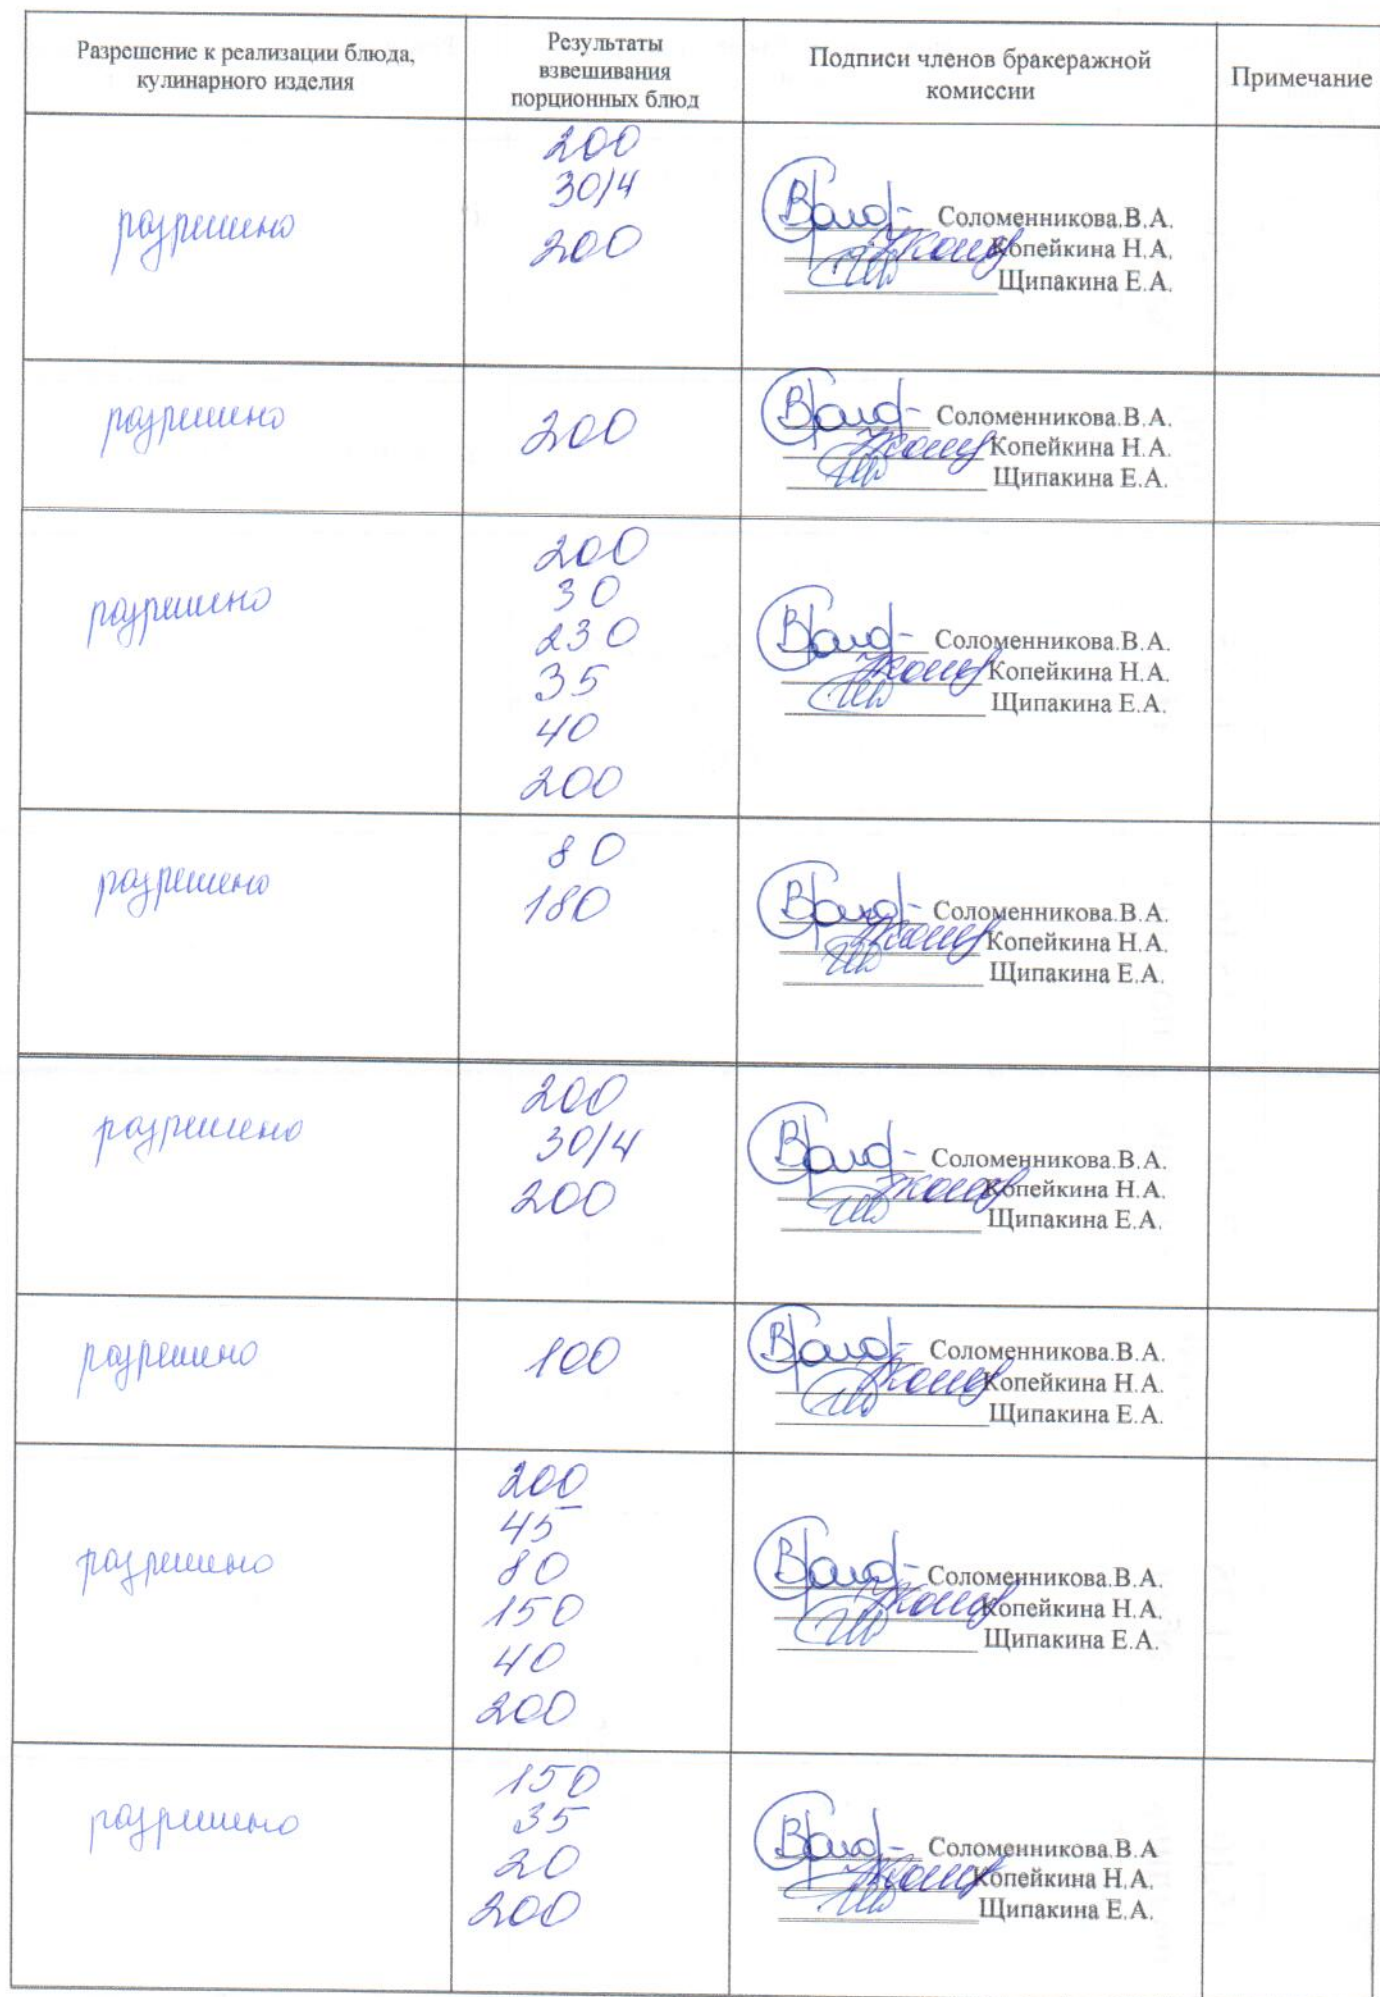 Разрешение к реализации блюда,
кулинарного изделия
Результаты
взвешивания
порционных блюд
Подписи членов бракеражной
комиссии
Примечание
разрешено
200
30/4
200
Соломенникова.В.А.
Копейкина Н.А.
Щипакина Е.А.
разрешено
200
Соломенникова.В.А.
Копейкина Н.А.
Щипакина Е.А.
разрешено
200
30
230
35
40
200
Соломенникова.В.А.
Копейкина Н.А.
Щипакина Е.А.
разрешено
80
180
Соломенникова.В.А.
Копейкина Н.А.
Щипакина Е.А.
разрешено
200
30/4
200
Соломенникова.В.А.
Копейкина Н.А.
Щипакина Е.А.
разрешено
100
Соломенникова.В.А.
Копейкина Н.А.
Щипакина Е.А.
разрешено
200
45
80
150
40
200
Соломенникова.В.А.
Копейкина Н.А.
Щипакина Е.А.
разрешено
150
35
20
200
Соломенникова.В.А
Копейкина Н.А.
Щипакина Е.А.